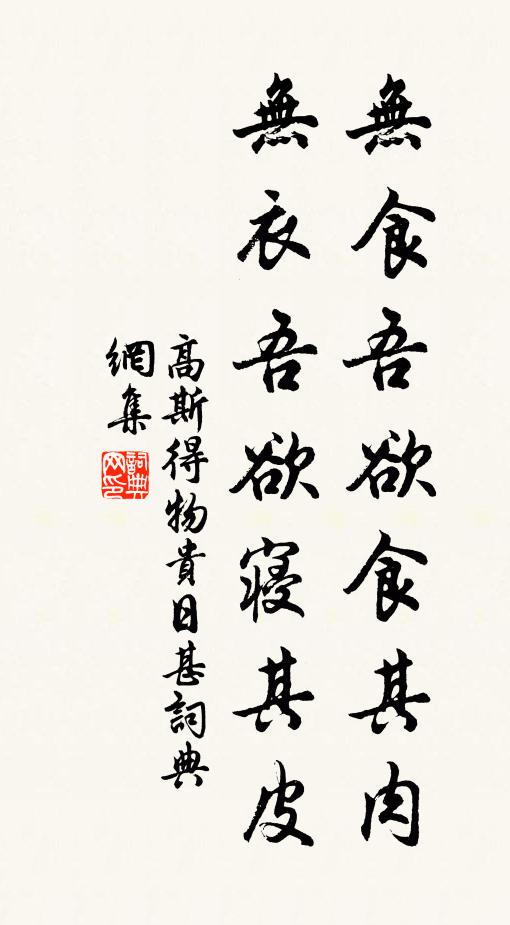 無食吾欲食其肉
無衣吾欲寝其皮
高斯得物貴日甚詞典
網集
詞典网印